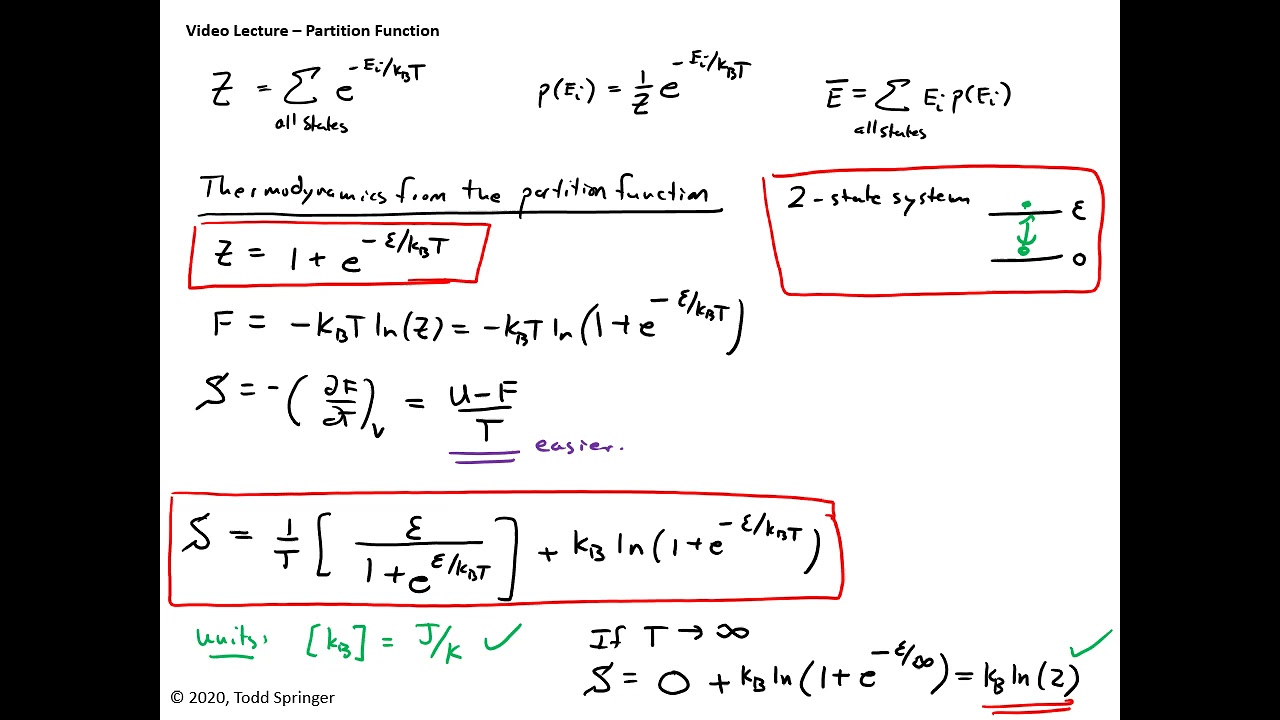 Video Lecture – Partition Function
Z = ∑ e^(-Eᵢ/k_BT)
all states
p(Eᵢ) = 1/Z e^(-Eᵢ/k_BT)
E̅ = ∑ Eᵢ p(Eᵢ)
all states
Thermodynamics from the partition function
2-state system
ε
0
Z = 1 + e^(-ε/k_BT)
F = -k_BT ln(Z) = -k_BT ln(1 + e^(-ε/k_BT))
S = -(∂F/∂T)_V = (U-F)/T
easier.
S = 1/T [ε/(1 + e^(ε/k_BT))] + k_B ln(1 + e^(-ε/k_BT))
units: [k_B] = J/K ✓
If T → ∞
S = 0 + k_B ln(1 + e^(-ε/∞)) = k_B ln(2) ✓
© 2020, Todd Springer